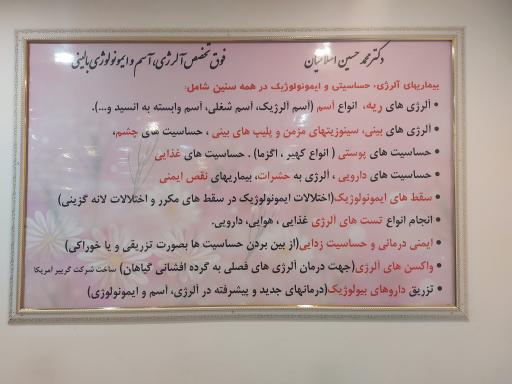 دکتر محمد حسین اسلامیان
فوق تخصص آلرژی، آسم و ایمونولوژی بالینی
بیماریهای آلرژی، حساسیتی و ایمونولوژیک در همه سنین شامل:
• آلرژی های ریه، انواع آسم (آسم آلرژیک، آسم شغلی، آسم وابسته به آنسید و...).
• آلرژی های بینی، سینوزیتهای مزمن و پلیپ های بینی ، حساسیت های چشم،
• حساسیت های پوستی ( انواع کهیر ، اگزما) . حساسیت های غذایی
• حساسیت های دارویی ، آلرژی به حشرات، بیماریهای نقص ایمنی
• سقط های ایمونولوژیک(اختلالات ایمونولوژیک در سقط های مکرر و اختلالات لانه گزینی)
• انجام انواع تست های آلرژی غذایی ، هوایی، دارویی.
• ایمنی درمانی و حساسیت زدایی(از بین بردن حساسیت ها بصورت تزریقی و یا خوراکی)
• واکسن های آلرژی(جهت درمان آلرژی های فصلی به گرده افشانی گیاهان) ساخت شرکت گرییر آمریکا
• تزریق داروهای بیولوژیک(درمانهای جدید و پیشرفته در آلرژی، آسم و ایمونولوژی)